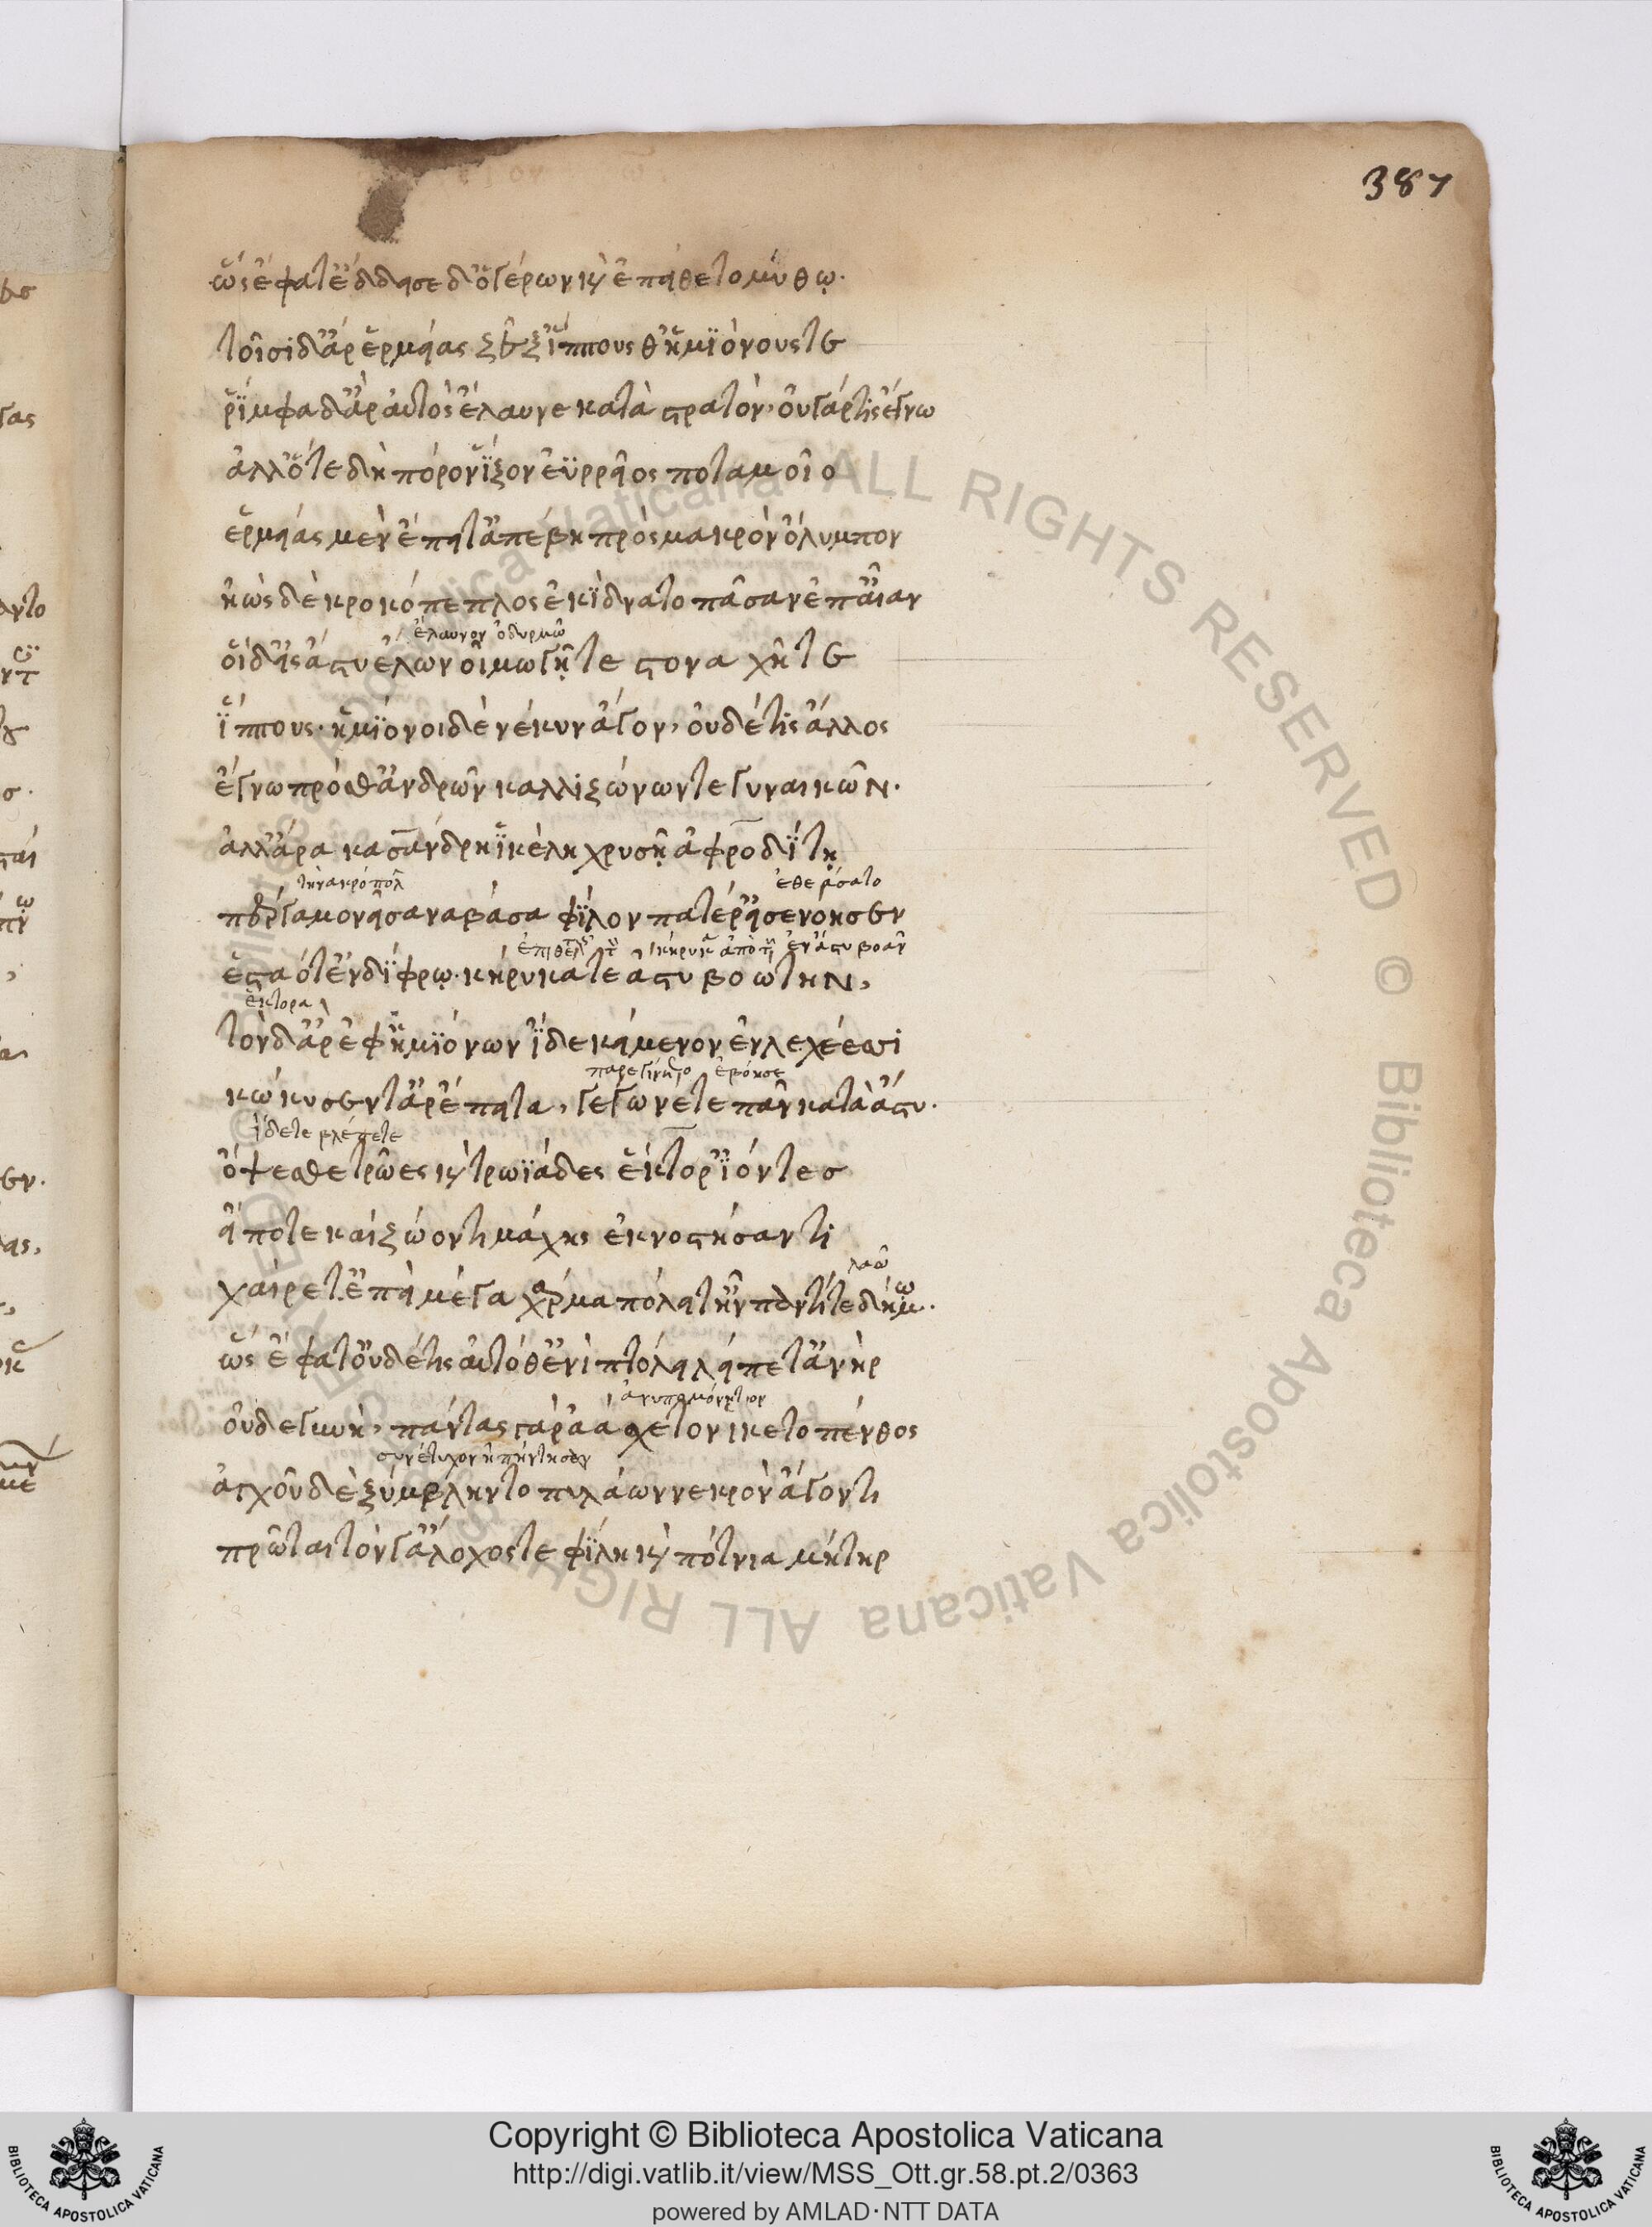 387
ὣς ἔφατ' ἔδδεισε δ' ὁ γέρων καὶ ἐπείθετο μύθῳ.
τοῖσι δ' ἄρ' ἑρμείας ζεῦξ' ἵππους θ' ἡμϊόνους τε
ῥίμφα δ' ἄρ' αὐτὸς ἔλαυνε κατὰ στρατόν, οὐ γάρ τις ἔγνω
ἀλλ' ὅτε δὴ πόρον ἷξον ἐϋρρεῖος ποταμοῖο
ἑρμείας μὲν ἔπειτ' ἀπέβη πρὸς μακρὸν ὄλυμπον
ἠὼς δὲ κροκόπεπλος ἐκίδνατο πᾶσαν ἐπ' αἶαν
ἔλαυνον ὀδυρμῶ
οἱ δ' εἰς ἄστυ ἔλων οἰμωγῇ τε στοναχῇ τε
ἵππους· ἡμϊονοι δὲ νέκυν ἄγον, οὐδέ τις ἄλλος
ἔγνω πρόσθ' ἀνδρῶν καλλιζώνων τε γυναικῶν.
ἀλλ' ἄρα κασάνδρη ἰκέλη χρυσῇ ἀφροδίτῃ
τὴν ἀκρόπολ ἐθεάσατο
πέργαμον εἰσαναβάσα φίλον πατέρ' εἰσενόησεν
ἐν ἄστυ βοᾶν
ἑσταότ' ἐν δίφρῳ. κήρυκά τε ἀστυβοώτην,
ἕκτορα
τὸν δ' ἄρ' ἐφ' ἡμϊόνων ἴδε κείμενον ἐν λεχέεσσι
κώκυσέν τ' ἄρ' ἔπειτα, γέγωνέ τε πᾶν κατὰ ἄστυ.
ἴδετε βλέπετε
ὄψεσθε τρῶες καὶ τρωϊάδες ἕκτορ' ἰόντες
εἴποτε καὶ ζώοντι μάχης ἐκνοστήσαντι
λαῶ
χαίρετ' ἐπεὶ μέγα χάρμα πόλει τ' ἦν παντί τε δήμω.
ὣς ἔφατ' οὐδέ τις αὐτόθ' ἐνὶ πτόλει λείπετ' ἀνὴρ
ἀνυπομόνητον
οὐδὲ γυνή, πάντας γὰρ ἀάσχετον ἵκετο πένθος
συνέτυχον ἢ πήντησαν
ἀγχοῦ δὲ ξύμβληντο πυλάων νεκρὸν ἄγοντι
πρῶται τόν γ' ἄλοχός τε φίλη καὶ πότνια μήτηρ
ALL RIGHTS RESERVED © Biblioteca Apostolica Vaticana
Copyright © Biblioteca Apostolica Vaticana
http://digi.vatlib.it/view/MSS_Ott.gr.58.pt.2/0363
powered by AMLAD·NTT DATA
BIBLIOTECA APOSTOLICA VATICANA
BIBLIOTECA APOSTOLICA VATICANA